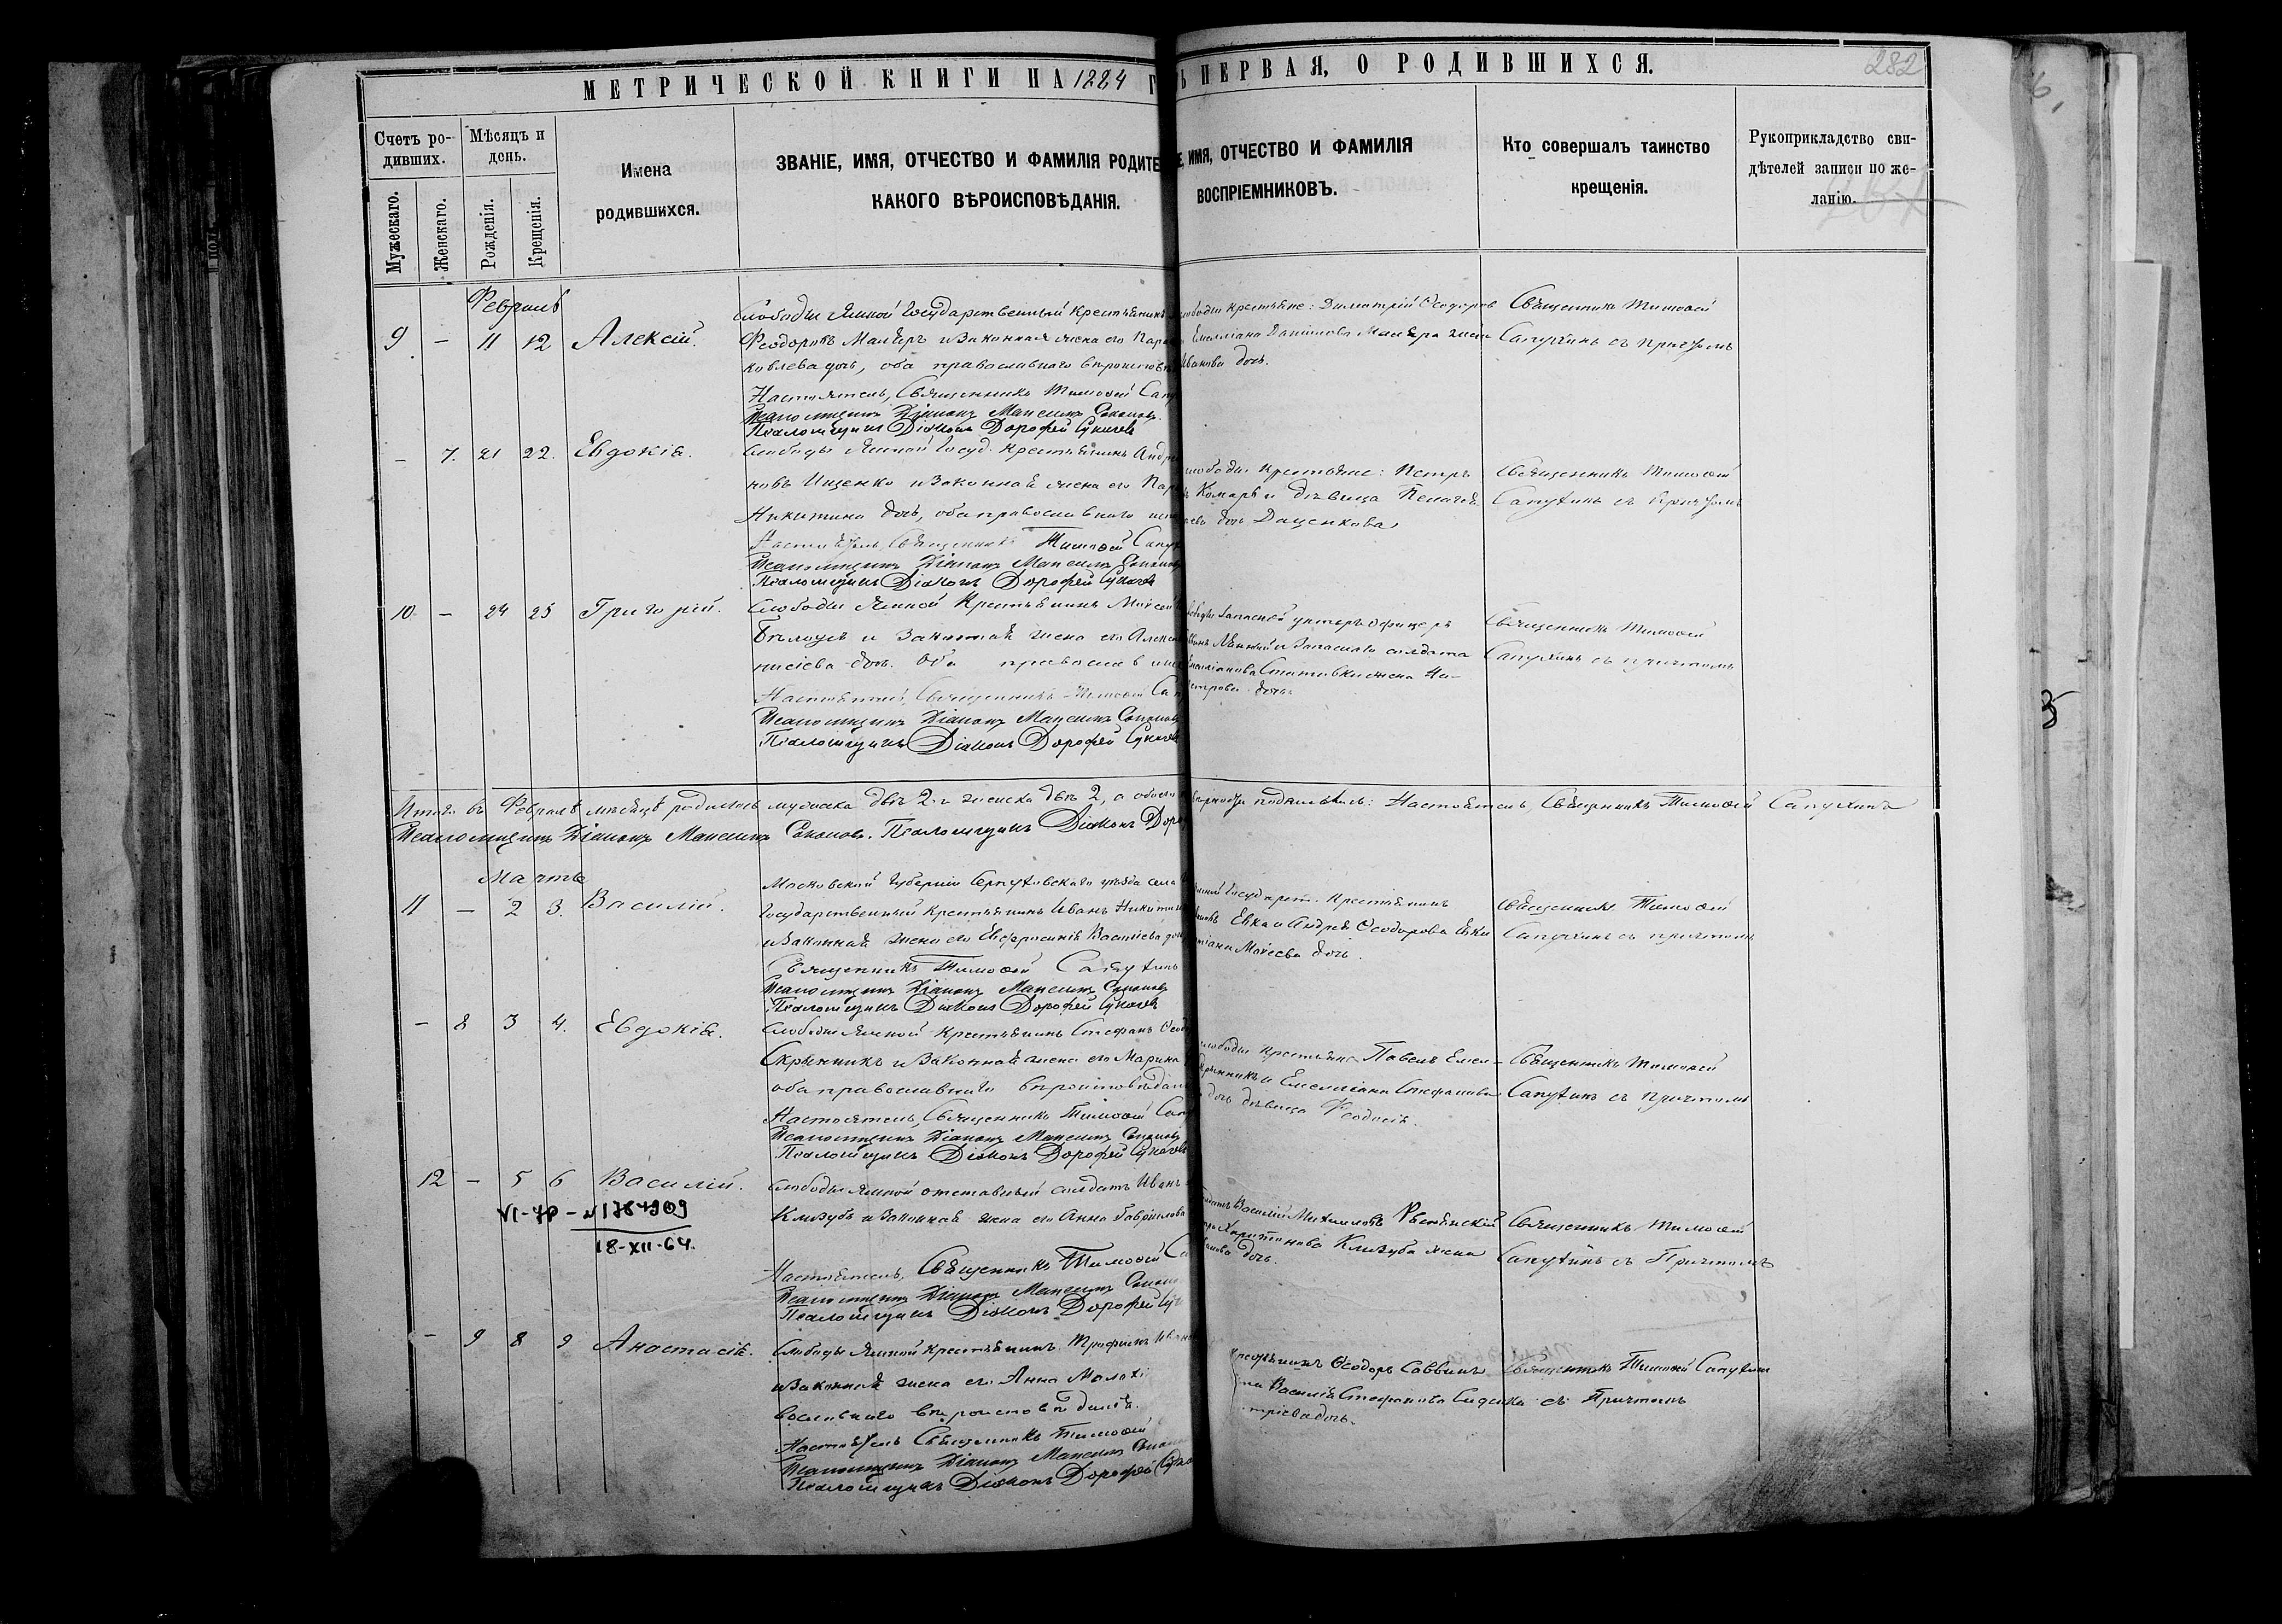 МЕТРИЧЕСКОЙ КНИГИ НА 1884 Г
Ь ПЕРВАЯ, О РОДИВШИХСЯ.
282
Счетъ ро-
дивших.
Мѣсяцъ и
день.
Мужескаго.
Женскаго.
Рожденія.
Крещенія.
Имена
родившихся.
ЗВАНІЕ, ИМЯ, ОТЧЕСТВО И ФАМИЛІЯ РОДИТЕ
КАКОГО ВѢРОИСПОВѢДАНІЯ.
Е, ИМЯ, ОТЧЕСТВО И ФАМИЛІЯ
ВОСПРІЕМНИКОВЪ.
Кто совершалъ таинство
крещенія.
Рукоприкладство сви-
дѣтелей записи по же-
ланію.
Февраль
9 - 11 12 Алексій.
Слободы Ямной Государственный крестьянинъ
Феодоровъ Маляръ и законная жена его Пара
ковлева дочь, оба православнаго вѣроисповѣ
Настоятель, Священникъ Тимофей Сапу
Псаломщикъ Діаконъ Максимъ Соколовъ.
Псаломщикъ Діаконъ Дорофей Сукачев
слободы крестьяне: Димитрій Феодоров
Емеліана Данилова Маляра жена
Иванова дочь.
Священникъ Тимофей
Сапухинъ съ причтомъ
- 7. 21 22. Евдокія.
Слободы Ямной Госуд. крестьянинъ Андре
новъ Ищенко и законная жена его Пар
Никитина дочь, оба православнаго испо
Настоятель, Священникъ Тимофей Сапух
Псаломщикъ Діаконъ Максимъ Соколовъ
Псаломщикъ Діаконъ Дорофей Сукачев
слободы крестьяне: Петръ
Комаръ и дѣвица Пелагея
ева дочь Даценкова
Священникъ Тимофей
Сапухинъ съ причтомъ
10. - 24 25 Григорій.
Слободы Ямной Крестьянинъ Моисей
Бѣлоусъ и законная жена его Алекса
нисіева дочь. Оба православна
Настоятель, Священникъ Тимофей Сап
Псаломщикъ Діаконъ Максимъ Соколовъ
Псаломщикъ Діаконъ Дорофей Сукачев
слободы запасной унтеръ офицеръ
и запаснаго солдата
Емеліанова жена На-
Петрова дочь
Священникъ Тимофей
Сапухинъ съ причтомъ
Итого въ Февралѣ мѣсяцѣ родилось мужеска двѣ 2. и женска двѣ 2, а обоего
вѣрности подписались: Настоятель, Священникъ Тимофей Сапухинъ
Псаломщикъ Діаконъ Максимъ Соколовъ. Псаломщикъ Діаконъ Доро
Мартъ
11 - 2 3. Василій.
Московской Губерніи Серпуховскаго уѣзда села
Государственный крестьянинъ Иванъ Никитин
и законная жена его Евфросинія Васильева доч
Священникъ Тимофей Сапухинъ
Псаломщикъ Діаконъ Максимъ Соколовъ
Псаломщикъ Діаконъ Дорофей Сукачев
Ямной Государст. Крестьянинъ
Евка и Андрея Феодорова Евки
Моисеева дочь.
Священникъ Тимофей
Сапухинъ съ причтомъ
- 8 3 4. Евдокія.
Слободы Ямной Крестьянинъ Стефанъ Феод
Скрынникъ и законная жена его Марина
оба православнаго вѣроисповѣдан
Настоятель, Священникъ Тимофей Сап
Псаломщикъ Діаконъ Максимъ Соколовъ
Псаломщикъ Діаконъ Дорофей Сукачев
слободы крестьяне Павелъ Емел-
Скрынникъ и Емеліана Стефанова
дочь дѣвица Феодосія.
Священникъ Тимофей
Сапухинъ съ причтомъ
12 - 5 6 Василій.
VI-ЯР - №1784909
18-XII-64.
Слободы Ямной отставной солдатъ Иванъ
Клизубъ и законная жена его Анна Гавріилова
Настоятель, Священникъ Тимофей Са
Псаломщикъ Діаконъ Максимъ Сокол
Псаломщикъ Діаконъ Дорофей Сук
солдатъ Василій Михаиловъ
Харитонова Клизуба жена
Иванова дочь.
Священникъ Тимофей
Сапухинъ съ Причтомъ
- 9 8 9 Анастасія.
Слободы Ямной крестьянинъ Трофимъ Иван
и законная жена его Анна Малахі
вославнаго вѣроисповѣданія.
Настоятель Священникъ Тимофей
Псаломщикъ Діаконъ Максимъ Сокол
Псаломщикъ Діаконъ Дорофей Сука
крестьянинъ Феодоръ Саввинъ
Василія Стефанова Сиденка
тріева дочь.
Священникъ Тимофей Сапухинъ
съ Причтомъ